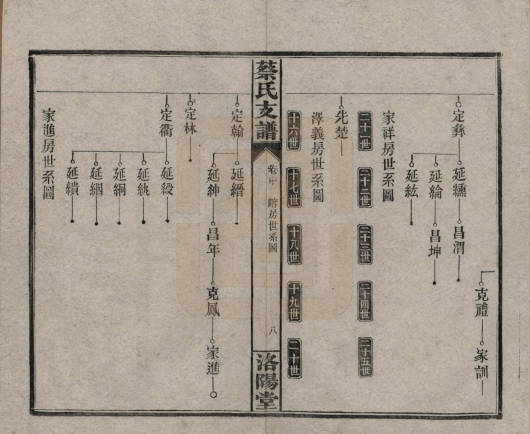 克禮
家訓
定彝
延纁
昌渭
延綸
昌坤
延絃
家祥房世系圖
二十一世
二十二世
二十三世
二十四世
二十五世
先楚
澤義房世系圖
十六世
十七世
十八世
十九世
二十世
蔡氏支譜
卷廾
房世系圖
八
洛陽堂
定翰
延縉
延紳
昌年
克鳳
家進
定林
定衢
延綬
延紈
延絅
延綑
延績
家進房世系圖